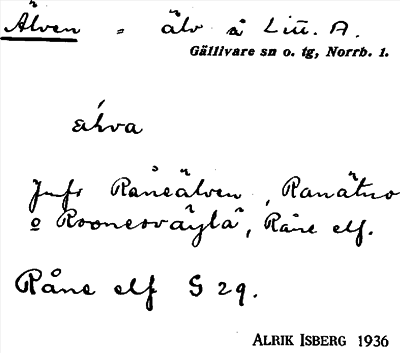 Älven = älv å Litt. A.
Gällivare sn o. tg, Norrb. l.
Jufr Råneälven, Ranätno
o Roonesväylä, Råne elf.
Råne elf S 29.
ALRIK ISBERG 1936